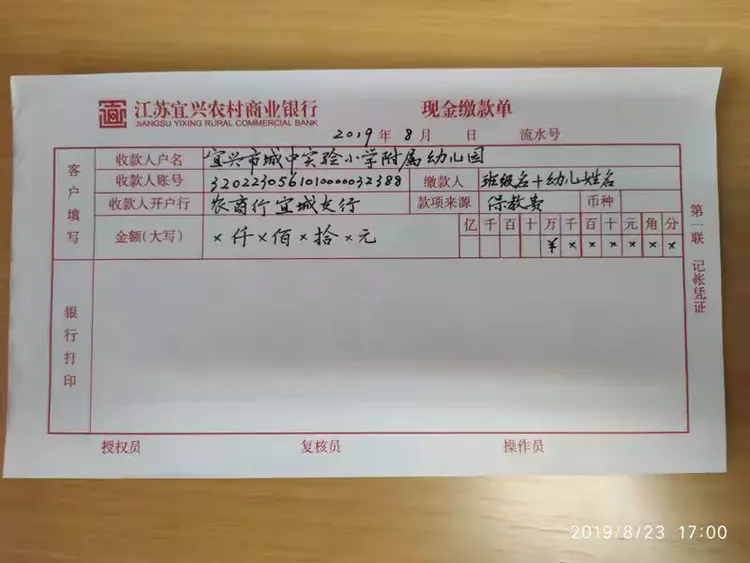 江苏宜兴农村商业银行 现金缴款单
JIANGSU YIXING RURAL COMMERCIAL BANK
2019 年 8 月 日 流水号
客户填写
收款人户名 宜兴市城中实验小学附属幼儿园
收款人账号 3202230561010000032388 缴款人 班级名+幼儿姓名
收款人开户行 农商行宜城支行 款项来源 保教费 币种
金额(大写) ×仟×佰×拾×元 亿 千 百 十 万 千 百 十 元 角 分
¥ × × × × × ×
银行打印
第一联 记帐凭证
授权员 复核员 操作员
2019/8/23 17:00